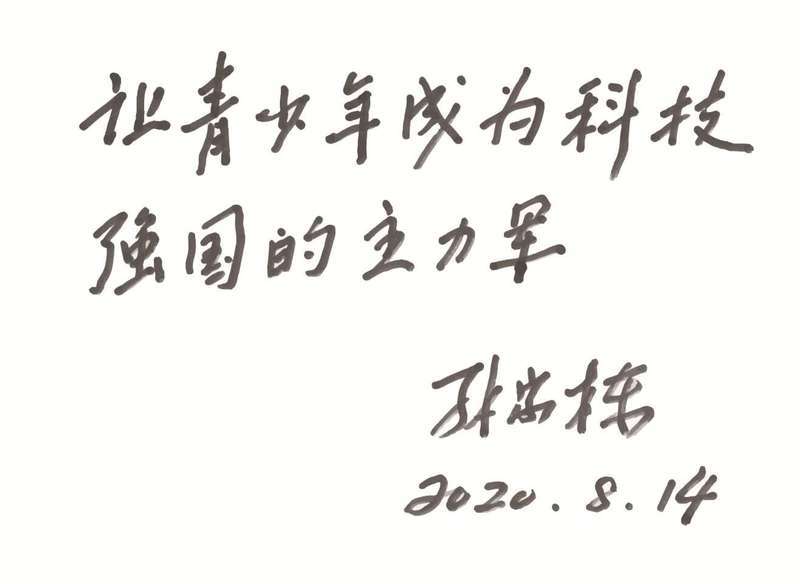 让青少年成为科技
强国的主力军
张忠栋
2020.8.14